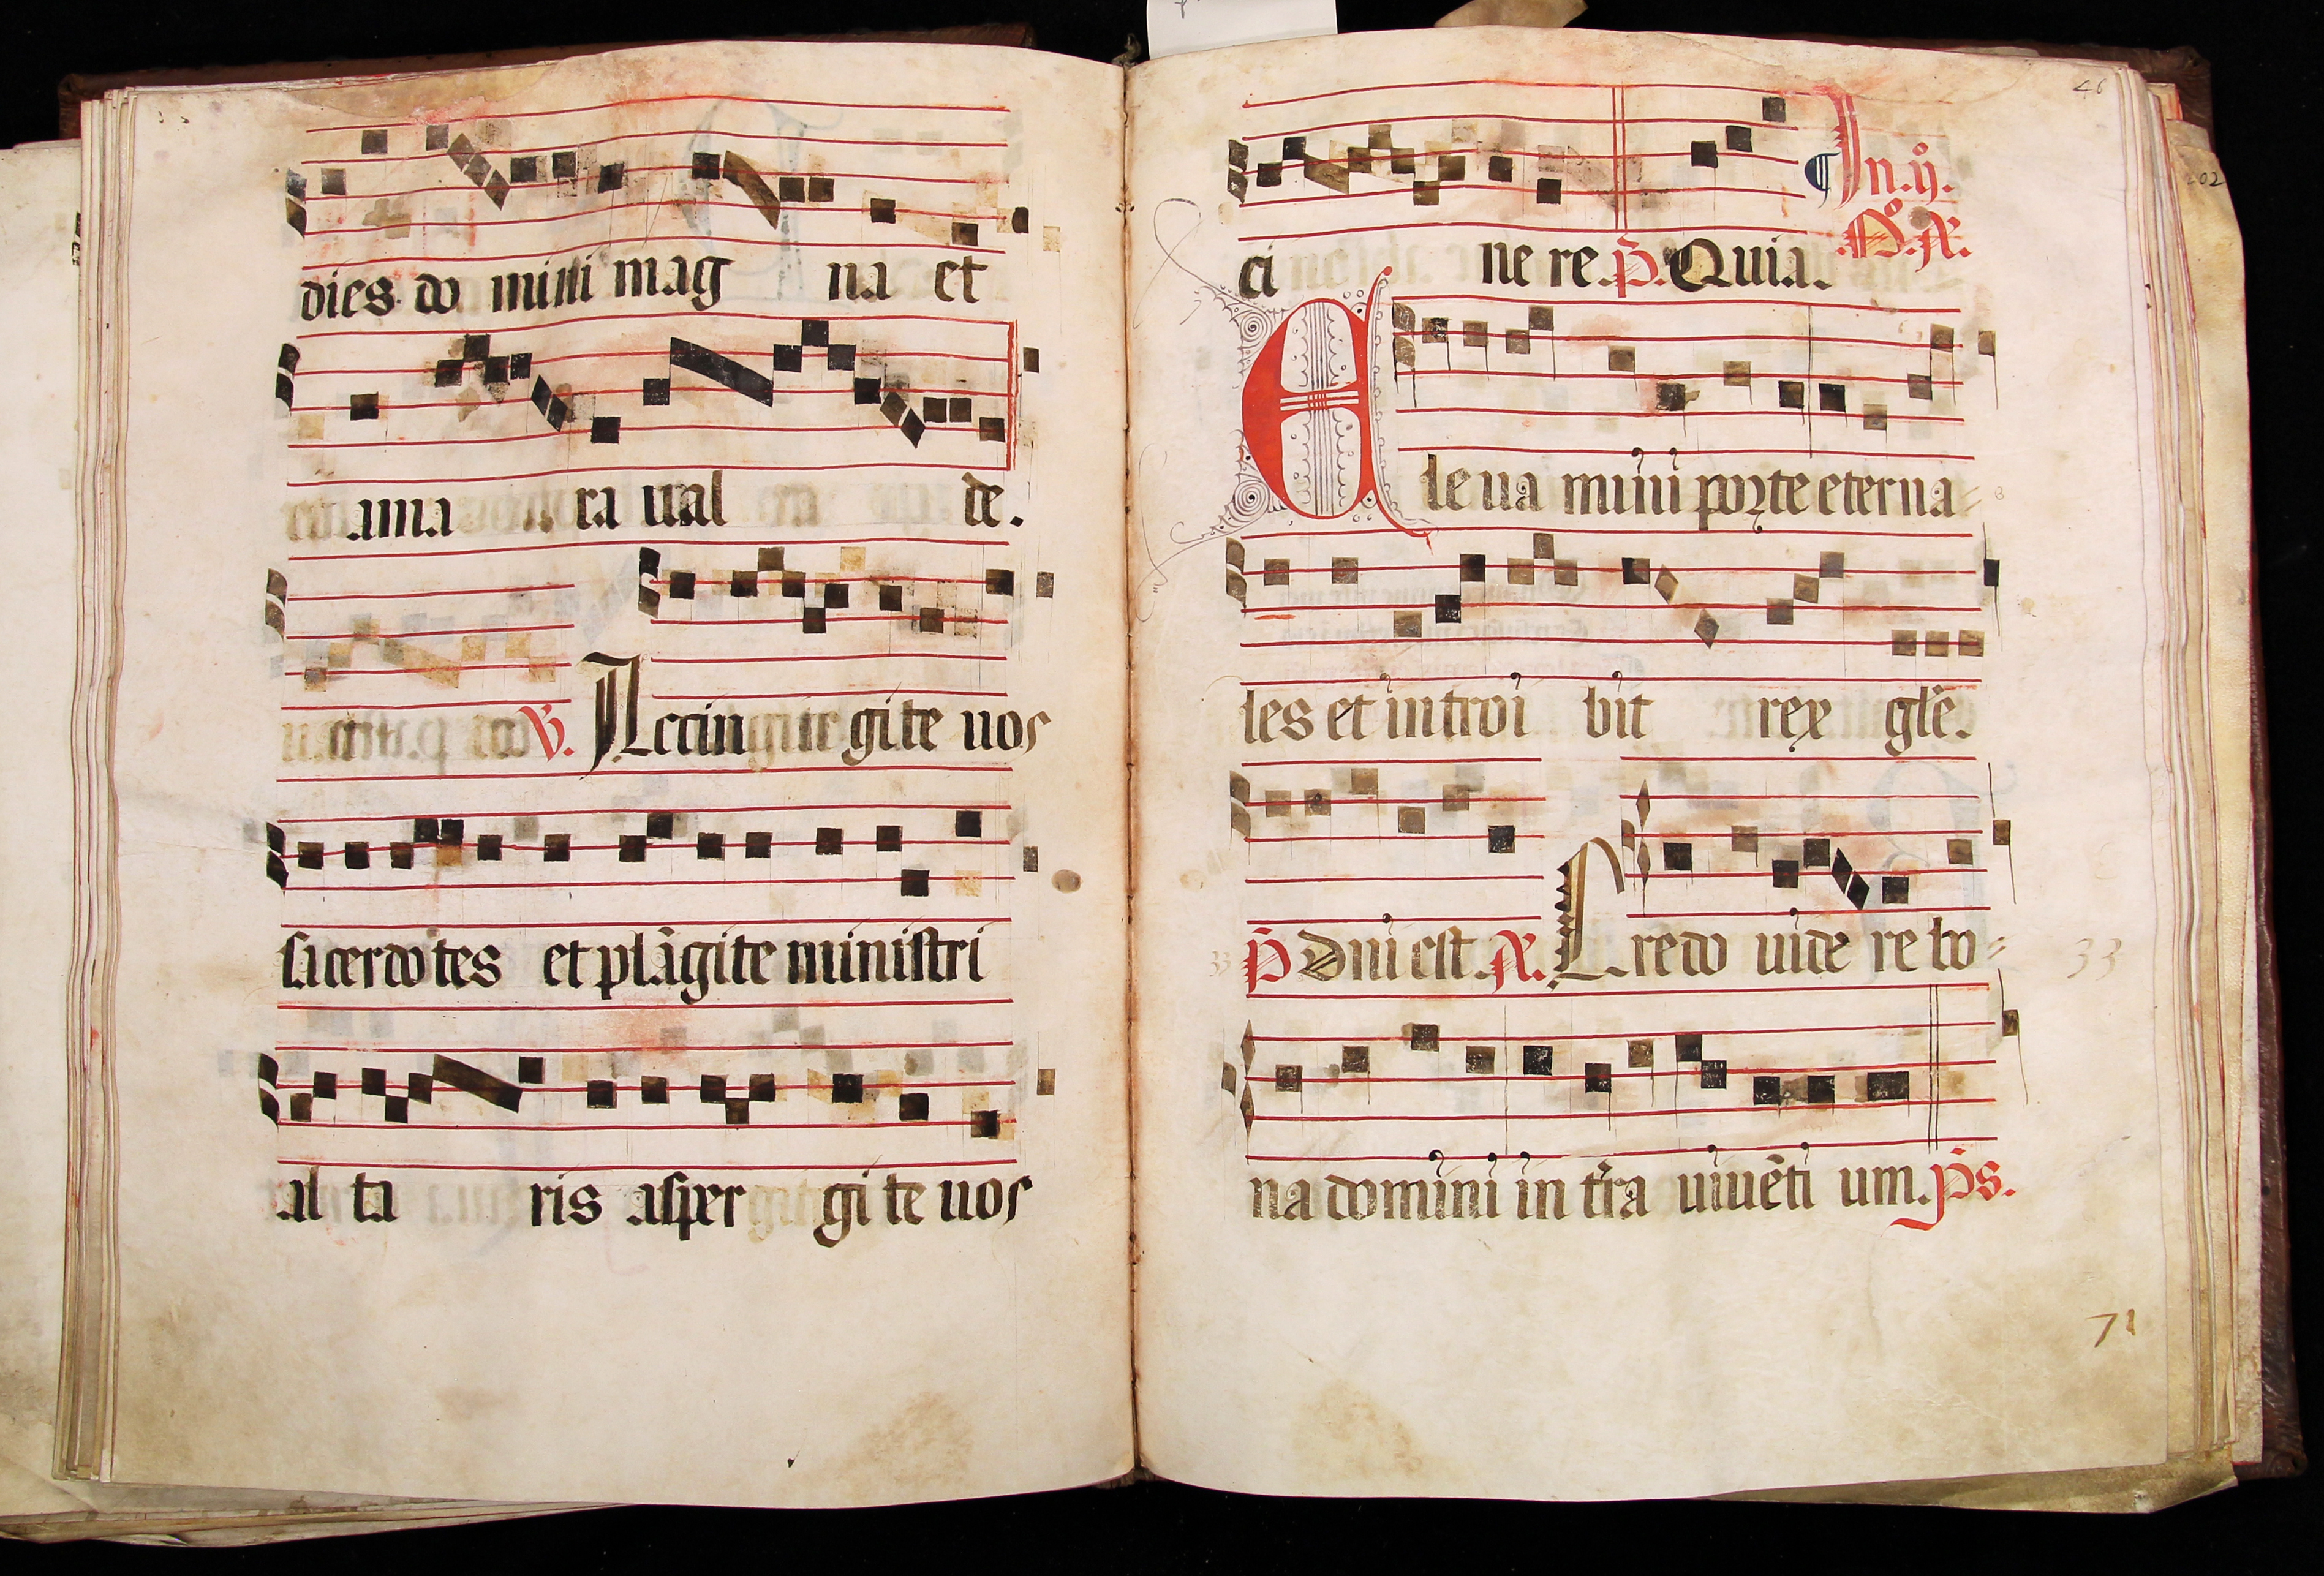 dies do mini mag na et
ama ra ual de.
℣. Accin gite uos
sacerdotes et plāgite ministri
al ta ris asper gi te uos
46
ci ne re. p̄. Quia. In .ij.
202
Eleua mini porte eterna=
les et introi bit rex gl̄e.
p̄ Dn̄i est. A. Credo uide re bo=
33
na domini in tr̄a uiuēti um. p̄s.
71